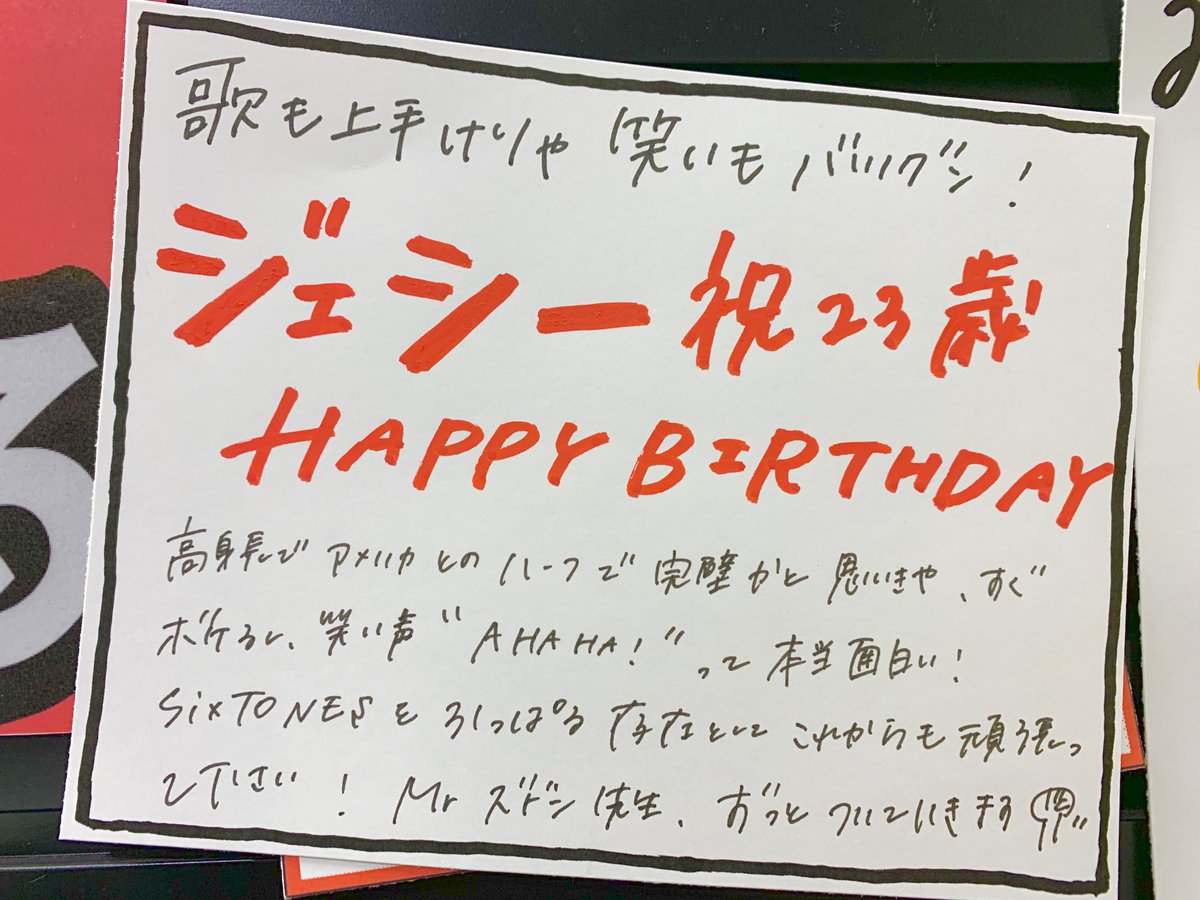 歌も上手けりゃ 笑いもバツグン!
ジェシー 祝23歳
HAPPY BIRTHDAY
高身長で アメリカとのハーフで 完璧かと思いきや、すぐ
ボケるし、笑い声"AHAHA!"って本当面白い!
SixTONESをひっぱる存在としてこれからも頑張っ
て下さい! Mr ズドン先生、ずっとついていきます